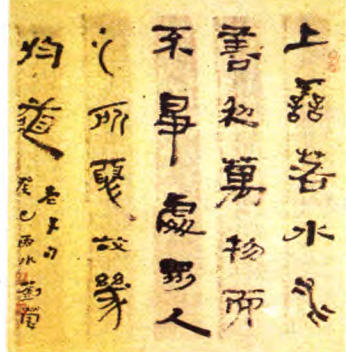 上善若水水
善利萬物而
不爭處眾人
之所惡故幾
於道
老子句
癸巳雨水 劉瑩